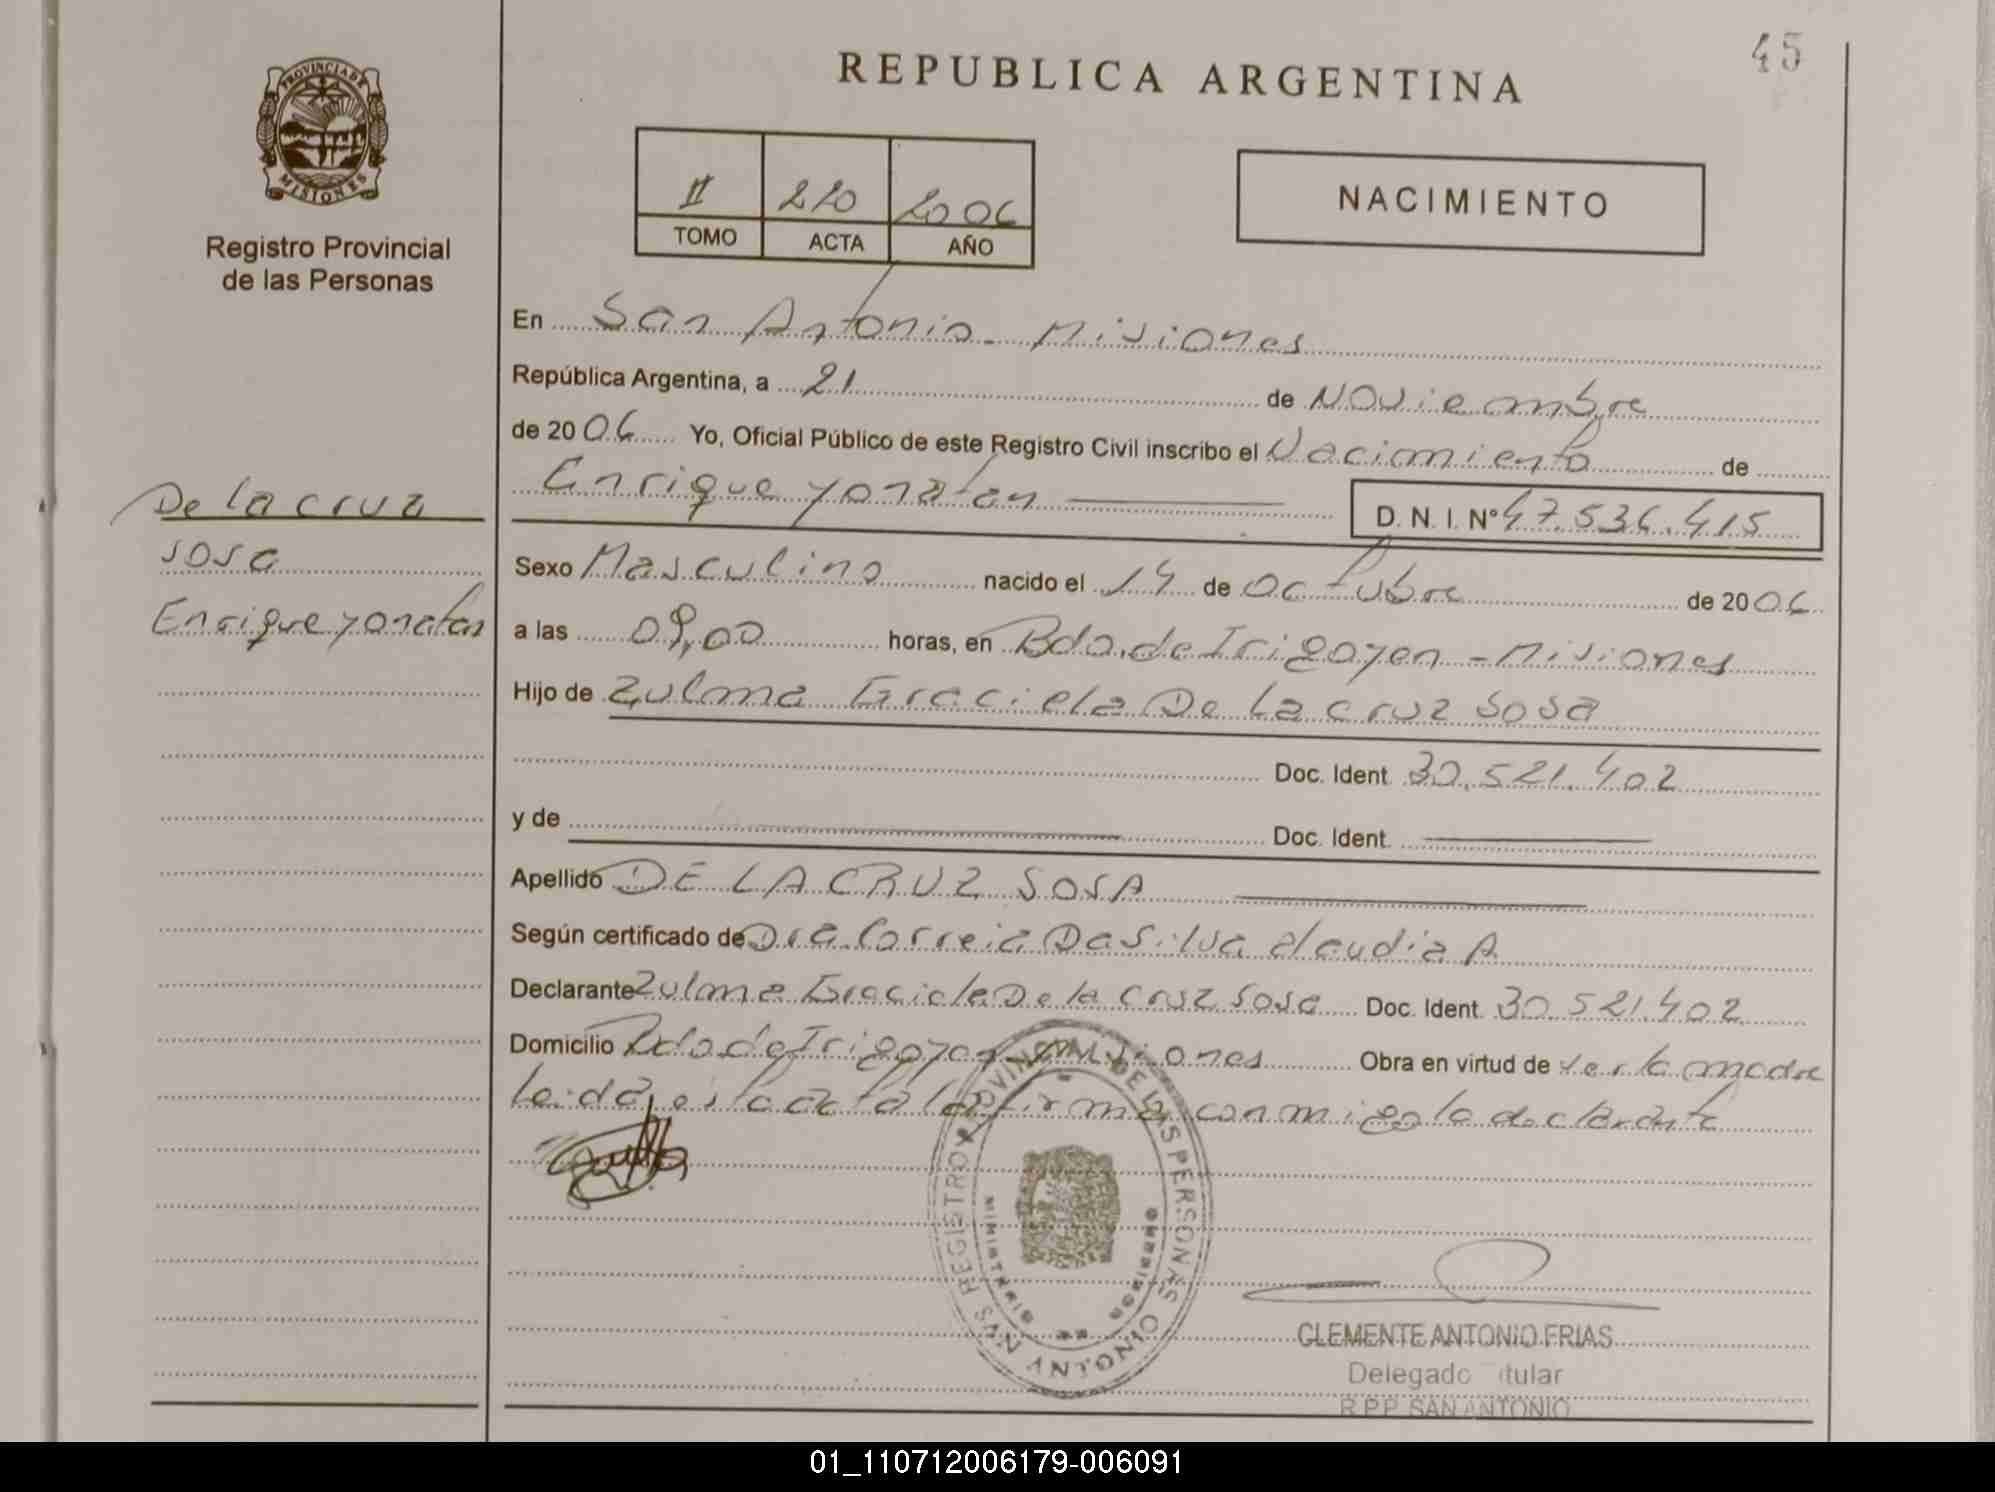 45
REPUBLICA ARGENTINA
PROVINCIA DE
MISIONES
Registro Provincial
de las Personas
II 220 2006
TOMO ACTA AÑO
NACIMIENTO
En San Antonio - Misiones
República Argentina, a 21 de Noviembre
de 2006 Yo, Oficial Público de este Registro Civil inscribo el Nacimiento de
Enrique yonatan
D. N. I. N° 47.536.415
De la cruz
sosa
Enrique yonatan
Sexo Masculino nacido el 14 de octubre de 2006
a las 09,00 horas, en Bdo. de Irigoyen - Misiones
Hijo de Zulma Graciela De La cruz sosa
Doc. Ident. 30.521.402
y de Doc. Ident.
Apellido DE LA CRUZ SOSA
Según certificado de Dra. Correia Da Silva claudia A.
Declarante Zulma Graciela De la cruz sosa Doc. Ident. 30.521.402
Domicilio Bdo. de Irigoyen - Misiones Obra en virtud de ser la madre
Leida esta acta la firma conmigo la declarante
REGISTRO PROVINCIAL DE LAS PERSONAS
MINISTERIO DE GOBIERNO
SAN ANTONIO
CLEMENTE ANTONIO FRIAS
Delegado itular
R.P.P. SAN ANTONIO
01_110712006179-006091